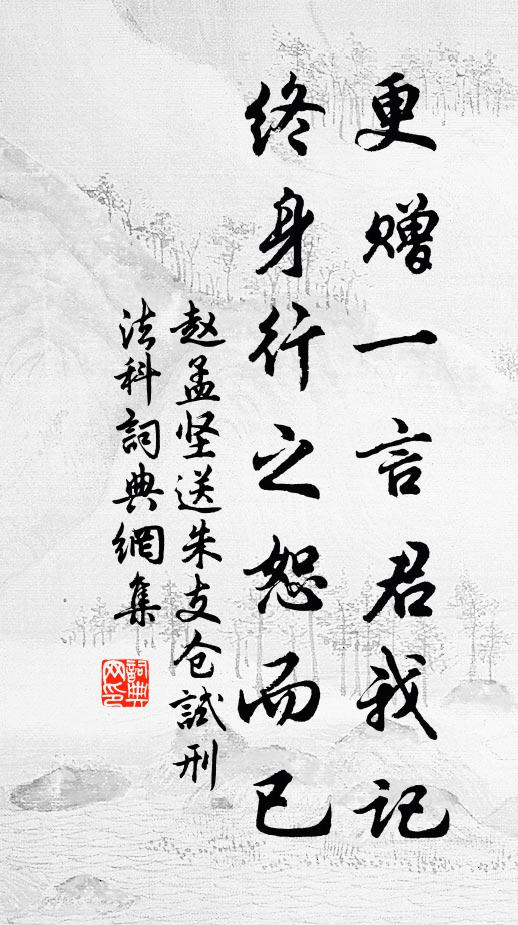 更赠一言君我记
终身行之恕而已
赵孟坚送朱支仓試刑
法科詞典網集
詞典网印